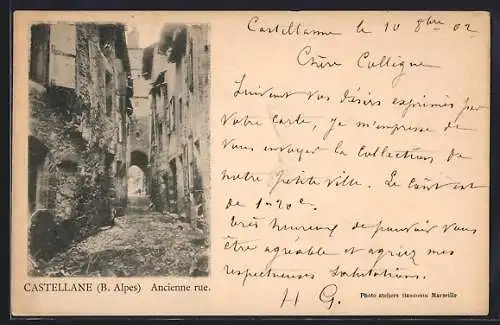 CASTELLANE (B. Alpes) Ancienne rue.
Castellane le 10 8bre 02
Chère Collègue
Suivant vos désirs exprimés par
votre Carte, je m'empresse de
vous envoyer la Collection de
notre petite ville. Le coût est
de 1 20c.
Très heureux de pouvoir vous
être agréable et agréez mes
respectueuses salutations.
H G.
Photo ateliers Marseille